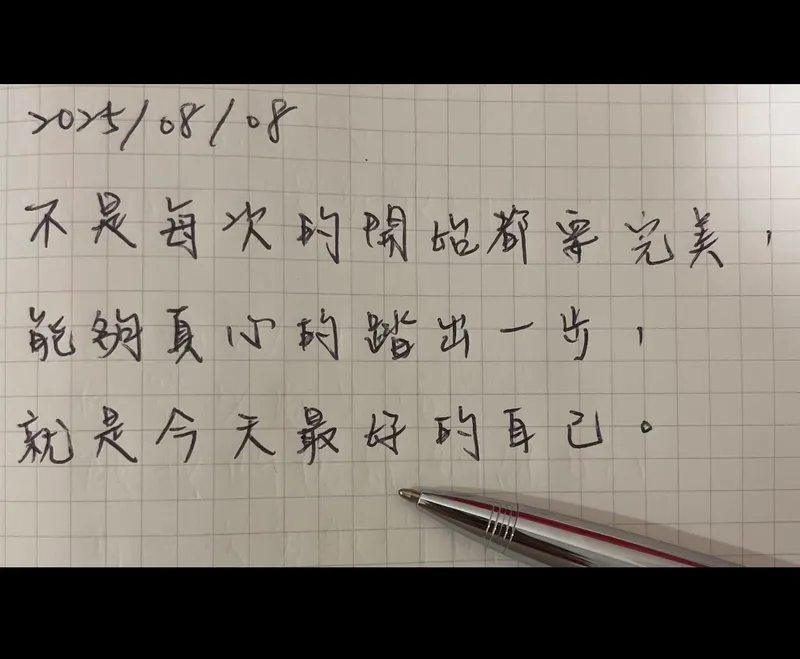 2025/08/08
不是每次的開始都要完美，
能夠真心的踏出一步，
就是今天最好的自己。